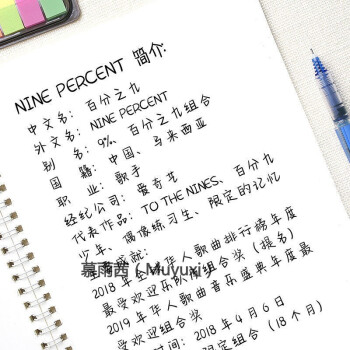 NINE PERCENT 简介:
中文名: 百分之九
外文名: NINE PERCENT
别 名: 9%、百分之九组合
国 籍: 中国、马来西亚
职 业: 歌手
经纪公司: 爱奇艺
代表作品: TO THE NINES、百分九
少年、偶像练习生、限定的记忆
慕雨茜（Muyuxi）
2018年全球华人歌曲排行榜年度
最受欢迎乐队/组合奖（提名）
2019年华人歌曲音乐盛典年度最
受欢迎组合奖
时间: 2018年4月6日
限定组合（18个月）